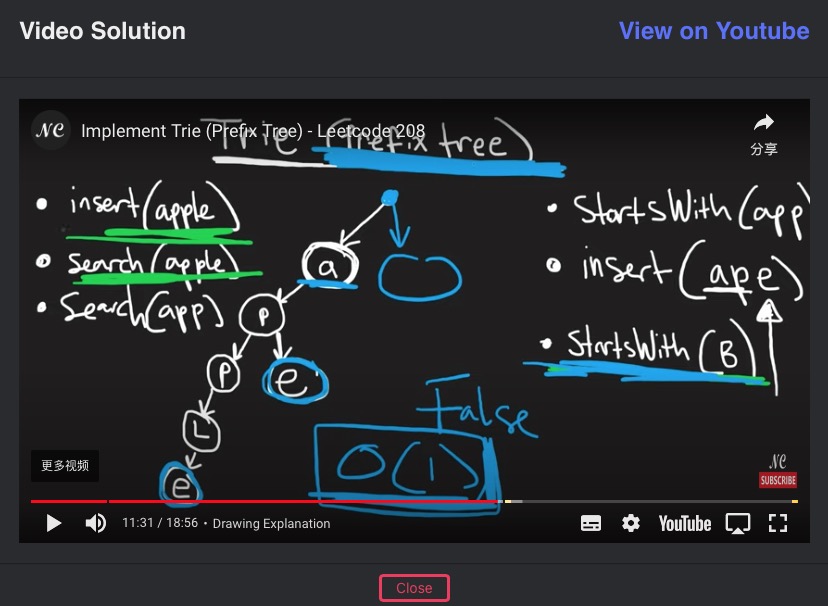 Video Solution
View on Youtube
NC
Implement Trie (Prefix Tree) - Leetcode 208
分享
Trie (Prefix tree)
• insert(apple)
• Search(apple)
• Search(app)
a
P
P
e
L
e
• StartsWith(app
• insert(ape)
• StartsWith(B)
False
O(1)
更多视频
NC
SUBSCRIBE
11:31 / 18:56 • Drawing Explanation
YouTube
Close